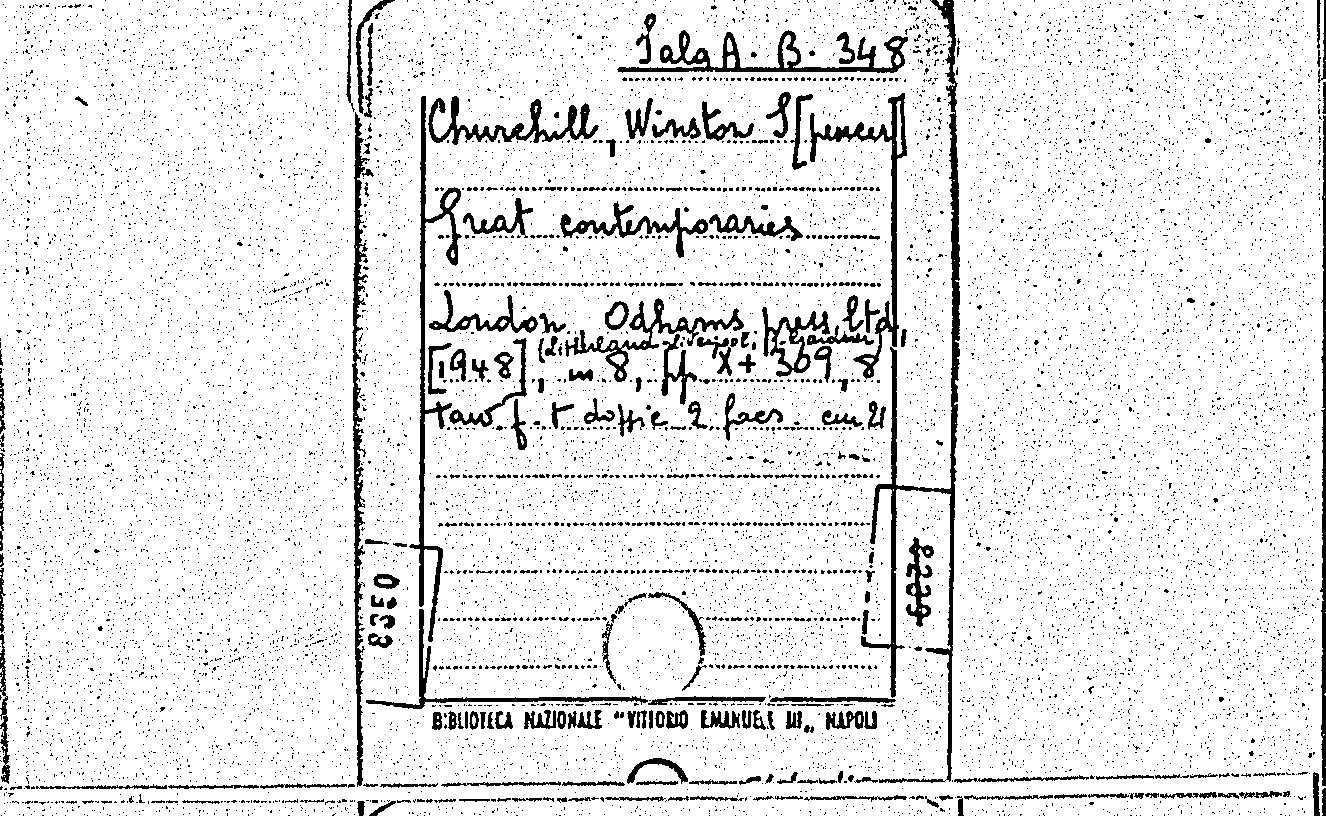 Sala A. B. 348
Churchill, Winston S[pencer]
Great contemporaries
London, Odhams press, ltd,
(Litherland-Liverpool, J. Gardner)
[1948], in 8, pp. X + 309, 8
tav. f. t doppie 2 facs. cm 21
8350
8229
BIBLIOTECA NAZIONALE "VITTORIO EMANUELE III„ NAPOLI